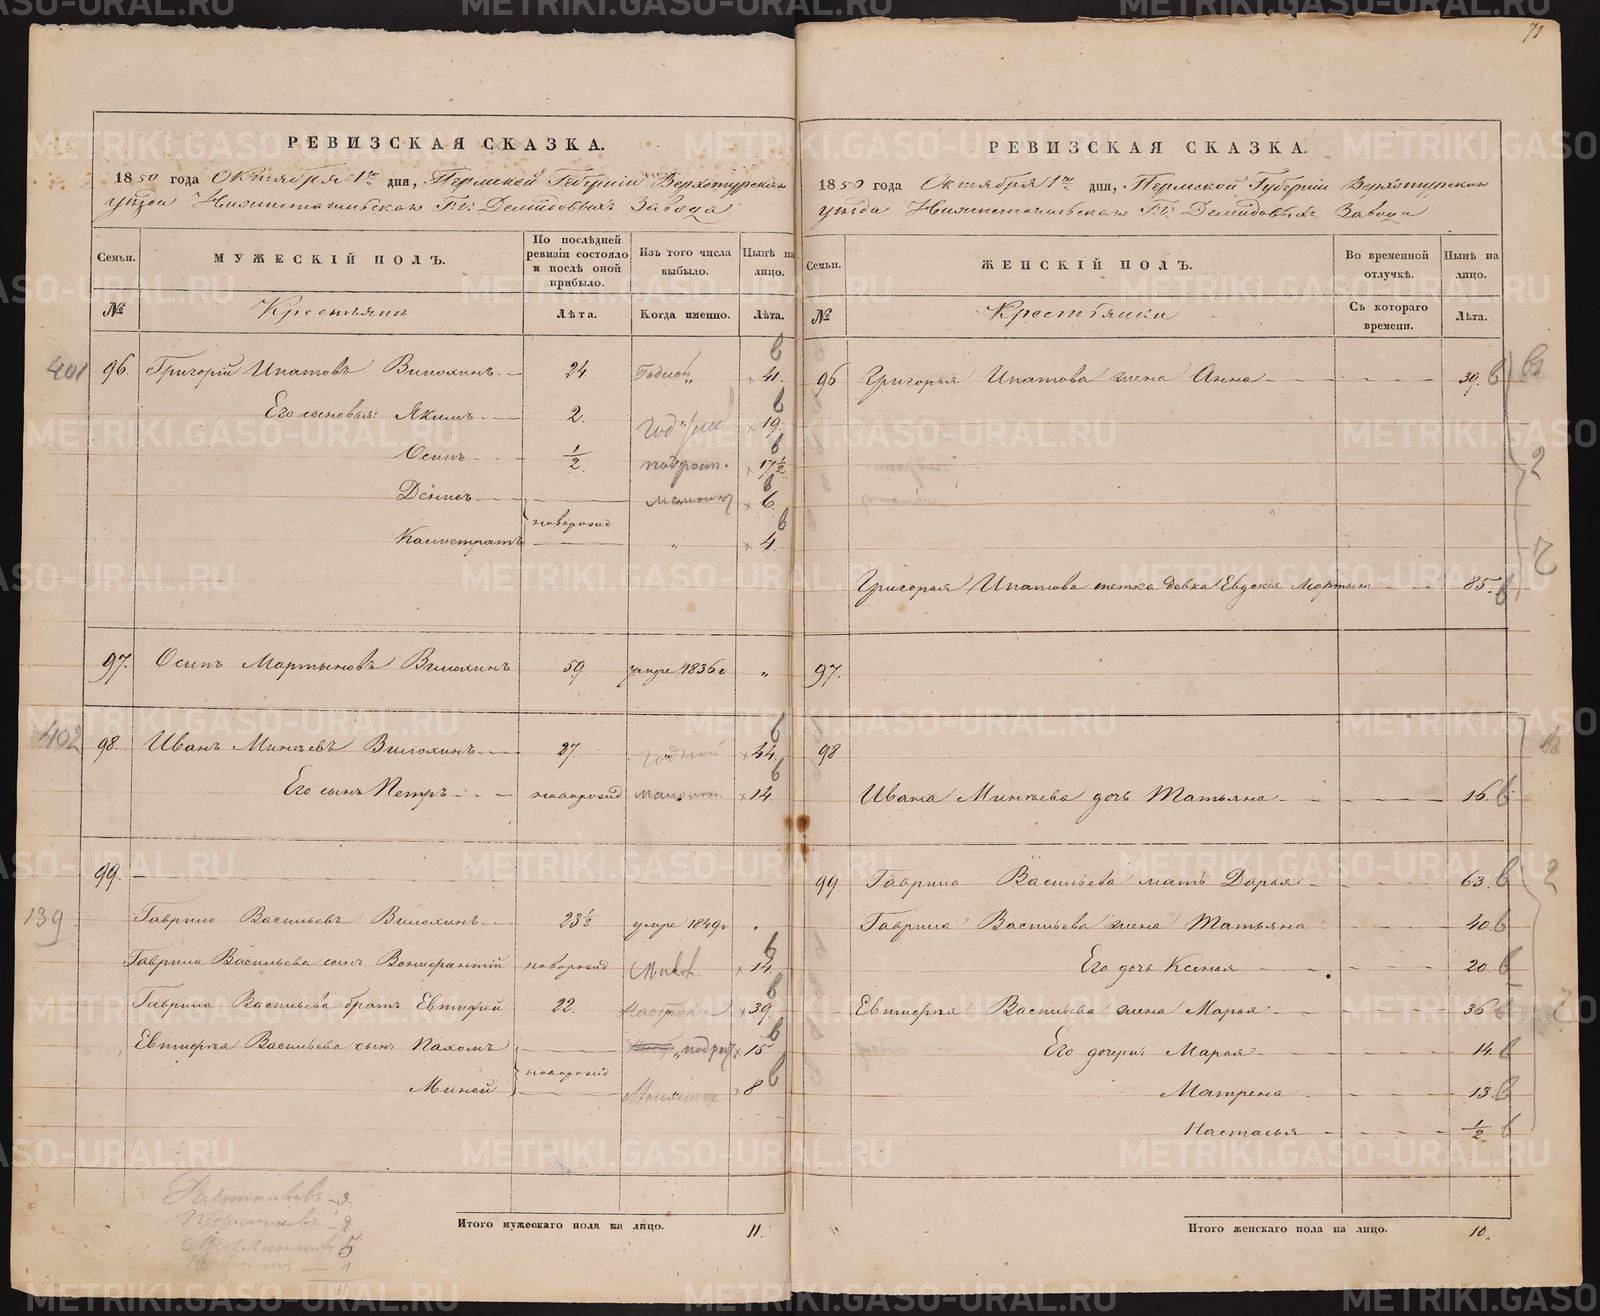 71
РЕВИЗСКАЯ СКАЗКА.
1850 года Октября 1го дня, Пермской Губерніи Верхотурскаго
уѣзда Нижнетагильскаго Г.г. Демидовыхъ Завода
Семьи. МУЖЕСКІЙ ПОЛЪ. По послѣдней ревизіи состояло и послѣ оной прибыло. Изъ того числа выбыло. Нынѣ на лицо.
№ Крестьяне Лѣта. Когда именно. Лѣта.
401 96. Григорій Ипатовъ Вилохинъ 24 Годной 41.
Его сыновья: Якимъ 2. 19.
Осипъ 1/2. подрост. 17 1/2
Денисъ 6.
новорожд
Калистратъ „ 4.
97. Осипъ Мартыновъ Вилохинъ 59 умре 1836 г „
402 98. Иванъ Минѣевъ Вилохинъ 27. годной 44.
Его сынъ Петръ новорожд 14.
99.
139 Гаврило Васильевъ Вилохинъ 23 1/2 умре 1849 г
Гаврила Васильева сынъ Вонифантій новорожд 14.
Гаврила Васильева братъ Евтифей 22. 39.
Евтифея Васильева сын: Пахомъ 15
новорожд
Миней 8
3.
2
5
1
11
Итого мужескаго пола на лицо. 11.
РЕВИЗСКАЯ СКАЗКА.
1850 года Октября 1го дня, Пермской Губерніи Верхотурскаго
уѣзда Нижнетагильскаго Г.г. Демидовыхъ Завода
Семьи. ЖЕНСКІЙ ПОЛЪ. Во временной отлучкѣ. Нынѣ на лицо.
№ Крестьянки Съ котораго времени. Лѣта.
96 Григорья Ипатова жена Анна 39.
2
2
Григорья Ипатова тетка девка Евдокія Мартын 85.
97.
98
Ивана Минѣева дочь Татьяна 16.
99 Гаврила Васильева мать Дарья 63. 2
Гаврила Васильева жена Татьяна 40
Его дочь Ксенья 20.
Евтифея Васильева жена Марья 36
Его дочери: Марья 14.
Матрена 13.
Настасья 1/2
Итого женскаго пола на лицо. 10.
METRIKI.GASO-URAL.RU